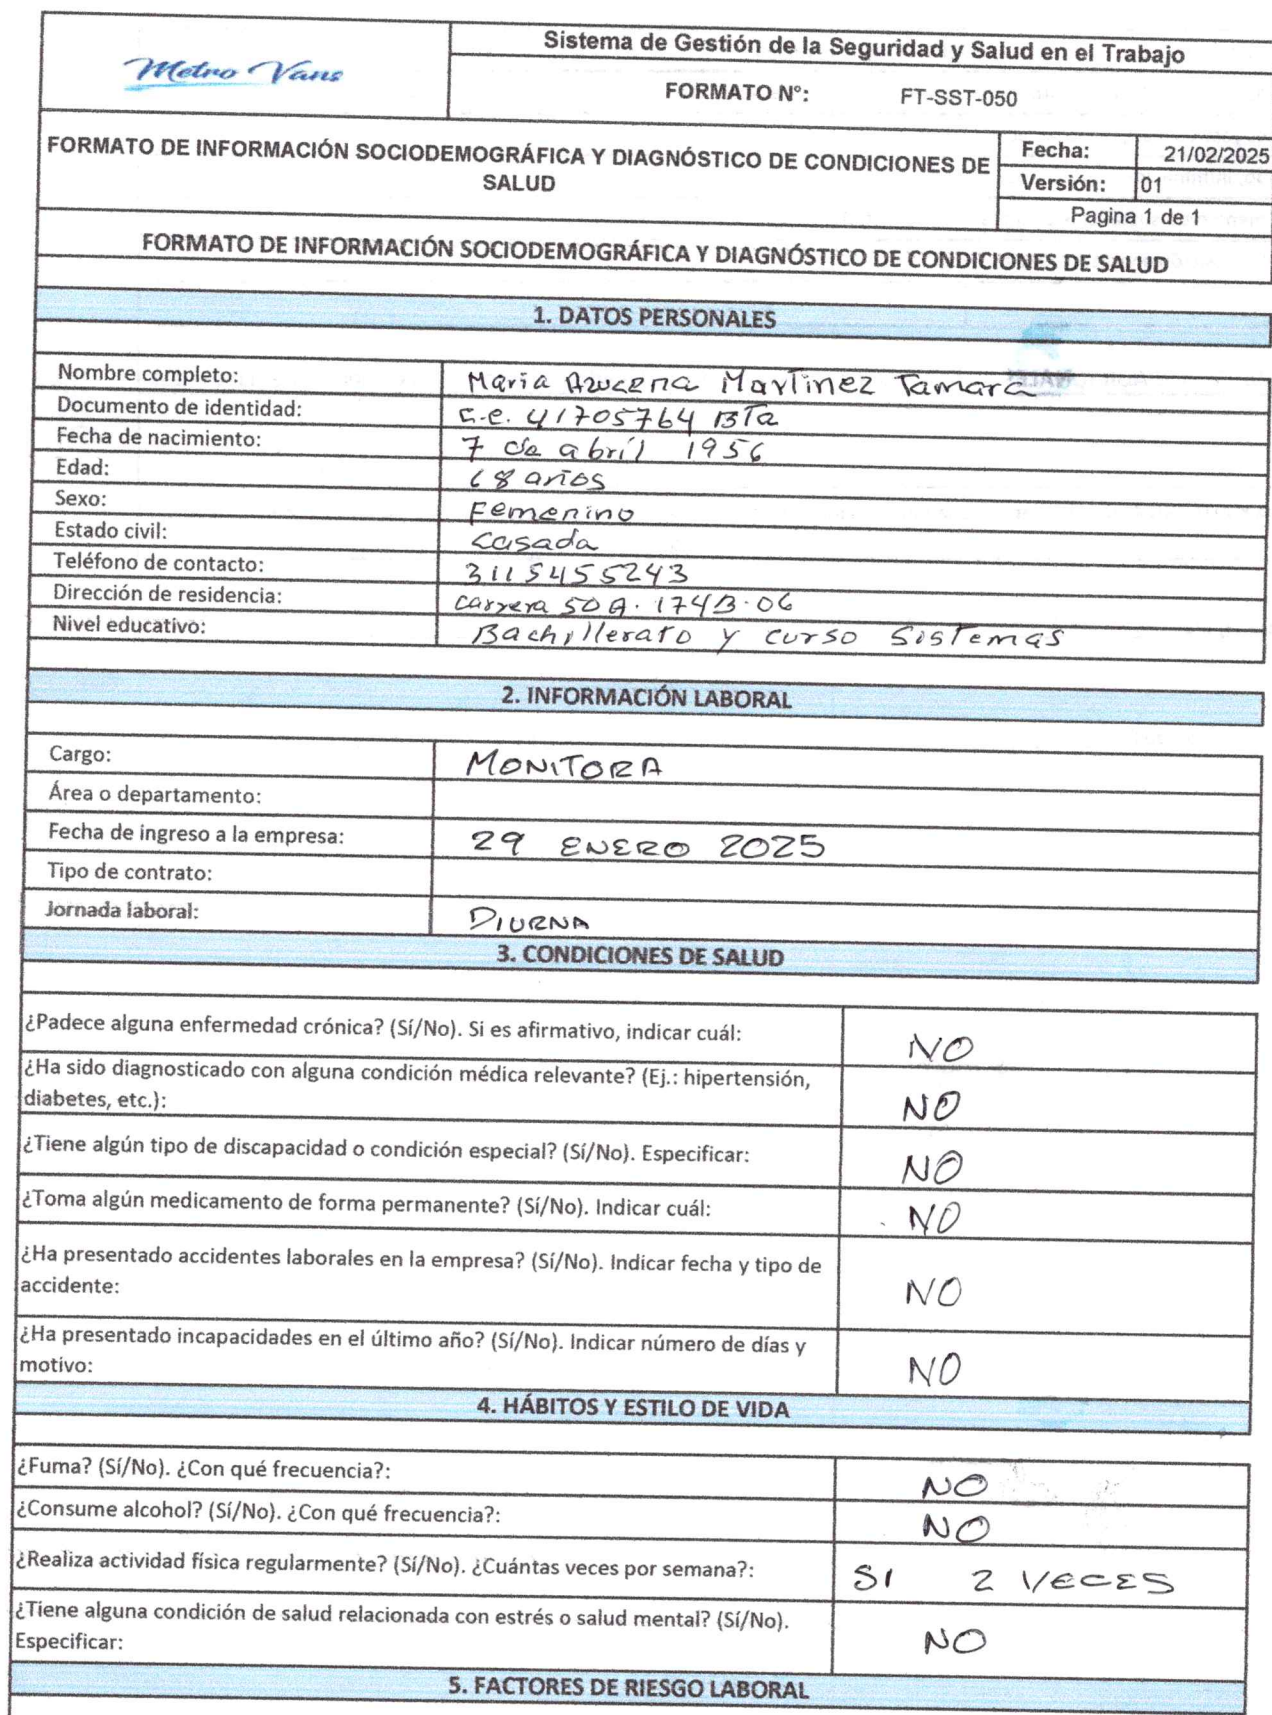 Metro Vans
Sistema de Gestión de la Seguridad y Salud en el Trabajo
FORMATO N°: FT-SST-050
FORMATO DE INFORMACIÓN SOCIODEMOGRÁFICA Y DIAGNÓSTICO DE CONDICIONES DE
SALUD
Fecha: 21/02/2025
Versión: 01
Pagina 1 de 1
FORMATO DE INFORMACIÓN SOCIODEMOGRÁFICA Y DIAGNÓSTICO DE CONDICIONES DE SALUD
1. DATOS PERSONALES
Nombre completo: Maria Azucena Martinez Tamara
Documento de identidad: c.c. 41705764 BTa
Fecha de nacimiento: 7 de abril 1956
Edad: 68 años
Sexo: Femenino
Estado civil: Casada
Teléfono de contacto: 3115455243
Dirección de residencia: Carrera 50A. 174B.06
Nivel educativo: Bachillerato y curso Sistemas
2. INFORMACIÓN LABORAL
Cargo: MONITORA
Área o departamento:
Fecha de ingreso a la empresa: 29 ENERO 2025
Tipo de contrato:
Jornada laboral: DIURNA
3. CONDICIONES DE SALUD
¿Padece alguna enfermedad crónica? (Sí/No). Si es afirmativo, indicar cuál: NO
¿Ha sido diagnosticado con alguna condición médica relevante? (Ej.: hipertensión,
diabetes, etc.): NO
¿Tiene algún tipo de discapacidad o condición especial? (Sí/No). Especificar: NO
¿Toma algún medicamento de forma permanente? (Sí/No). Indicar cuál: NO
¿Ha presentado accidentes laborales en la empresa? (Sí/No). Indicar fecha y tipo de
accidente: NO
¿Ha presentado incapacidades en el último año? (Sí/No). Indicar número de días y
motivo: NO
4. HÁBITOS Y ESTILO DE VIDA
¿Fuma? (Sí/No). ¿Con qué frecuencia?: NO
¿Consume alcohol? (Sí/No). ¿Con qué frecuencia?: NO
¿Realiza actividad física regularmente? (Sí/No). ¿Cuántas veces por semana?: SI 2 VECES
¿Tiene alguna condición de salud relacionada con estrés o salud mental? (Sí/No).
Especificar: NO
5. FACTORES DE RIESGO LABORAL